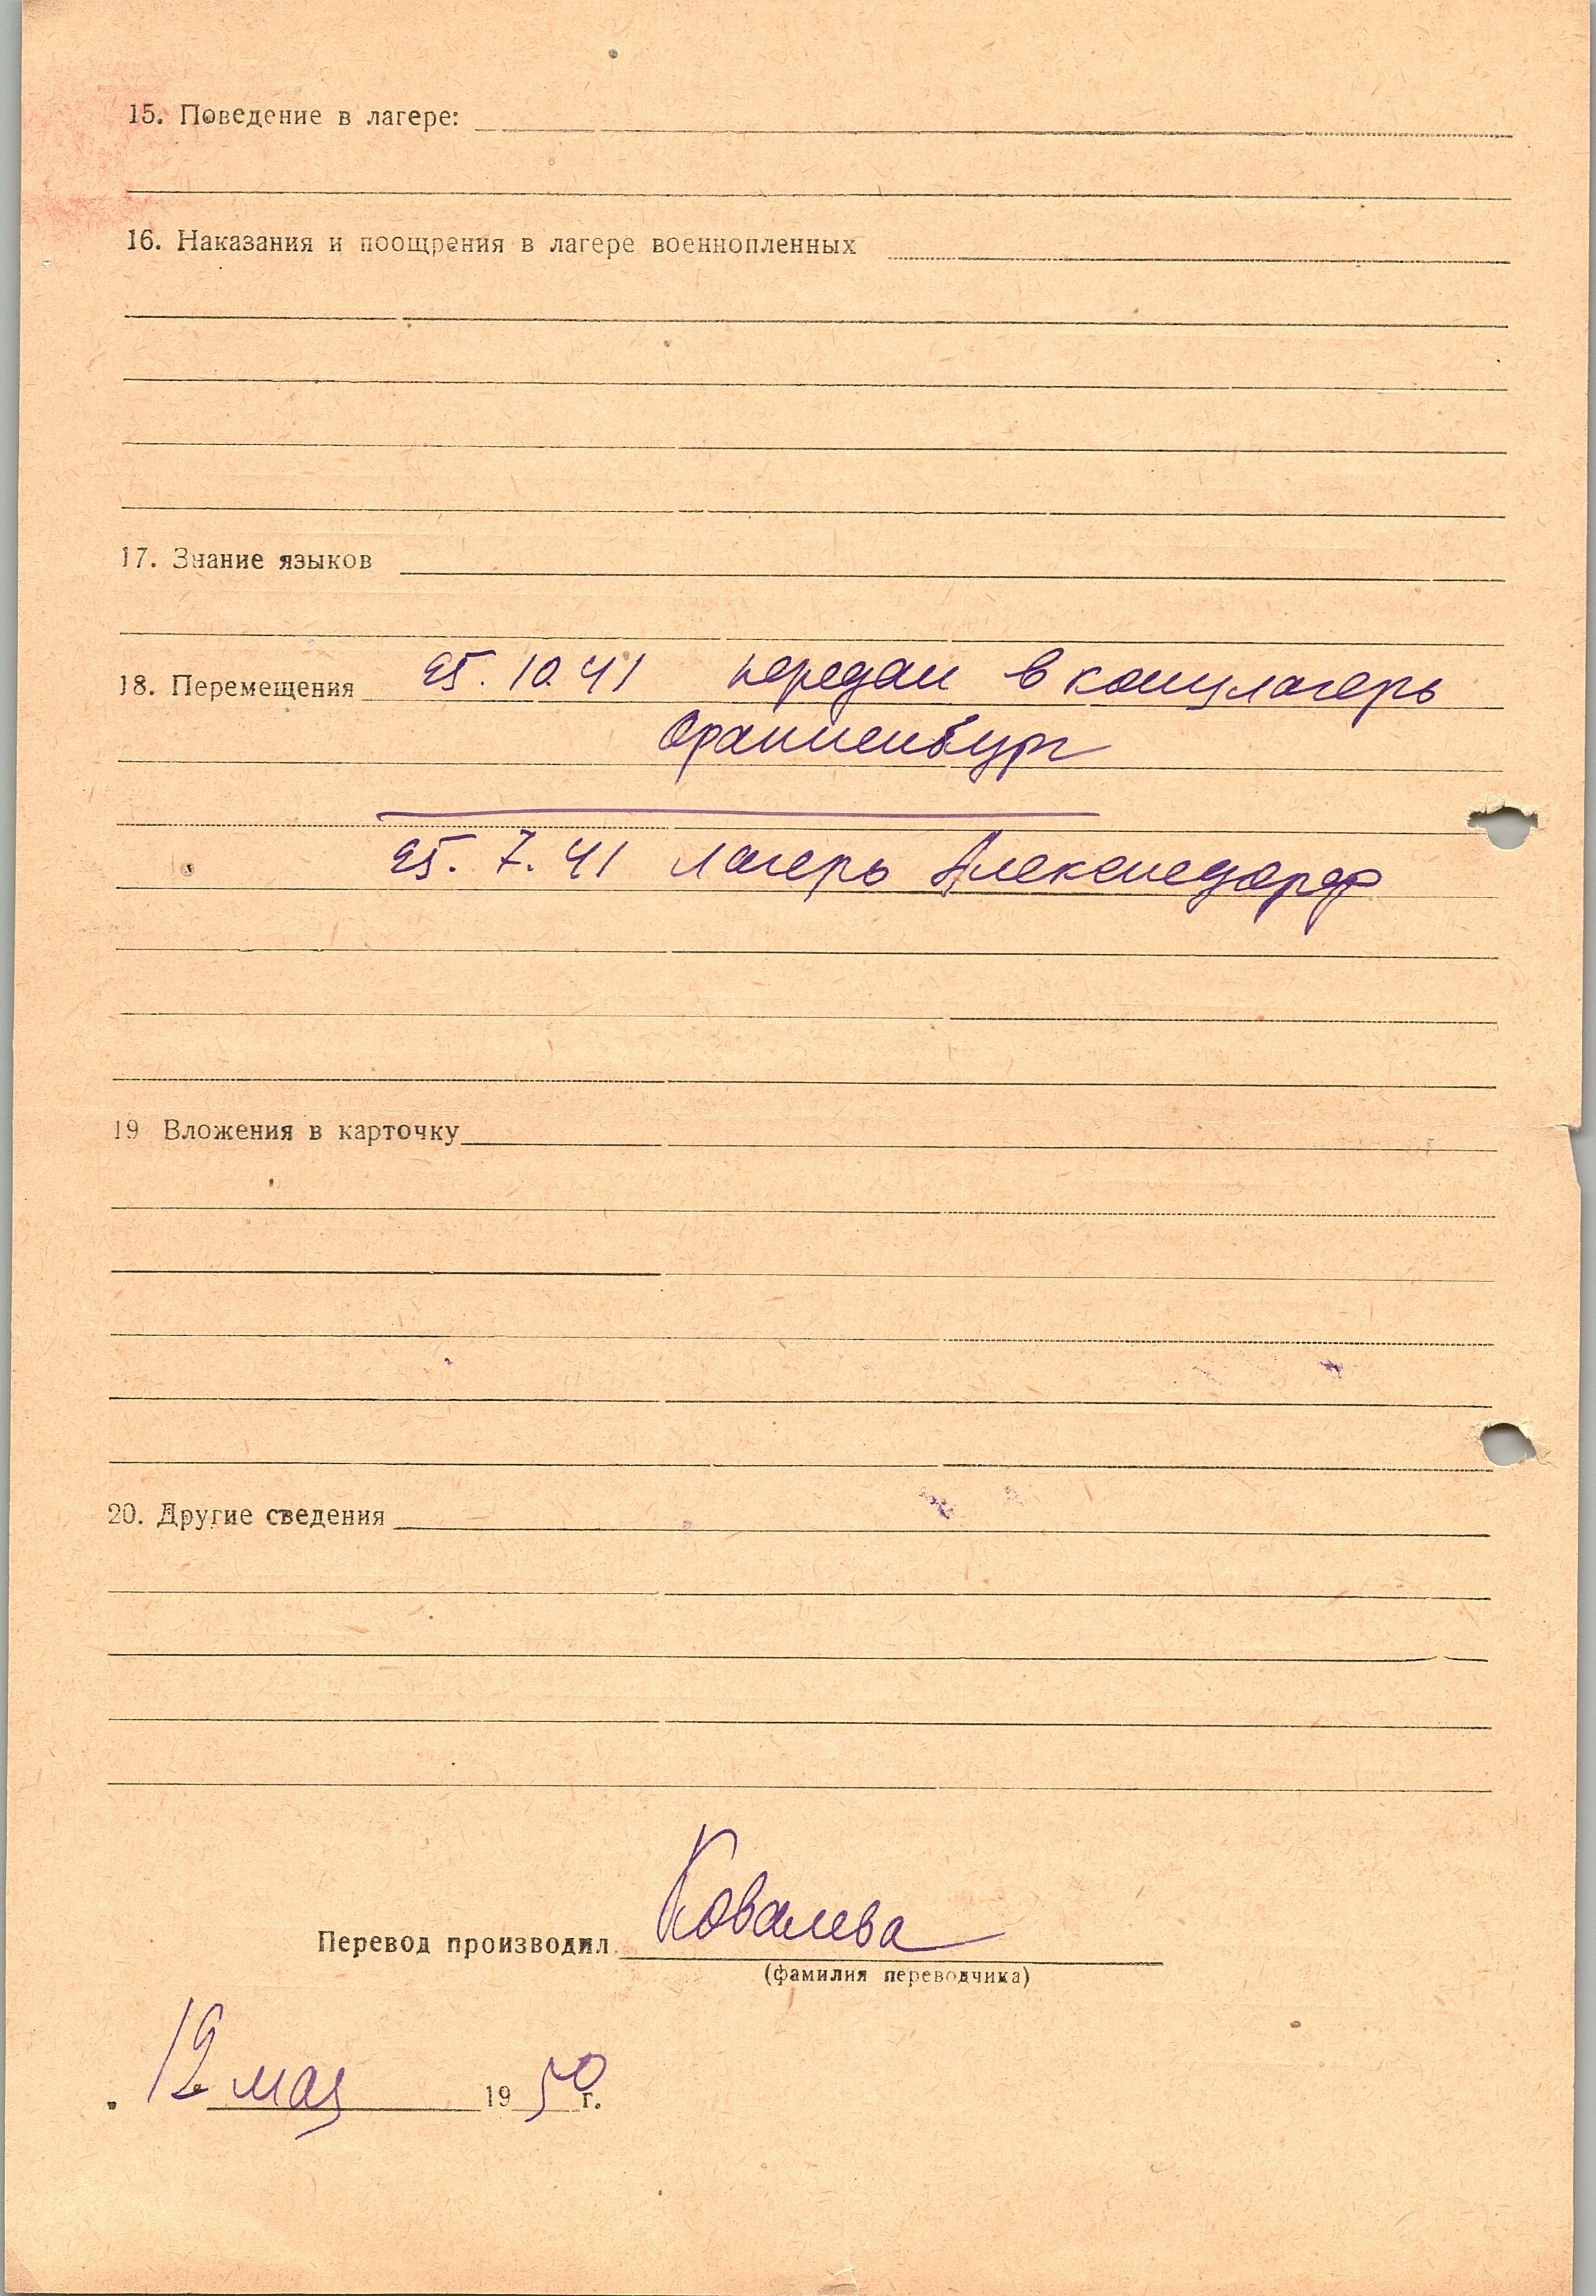 15. Поведение в лагере:
16. Наказания и поощрения в лагере военнопленных
17. Знание языков
18. Перемещения 25. 10 41 передан в концлагерь
Ораниенбург
25. 7. 41 лагерь Алексисдорф
19 Вложения в карточку
20. Другие сведения
Перевод производил Ковалева
(фамилия переводчика)
12 мая 1950 г.